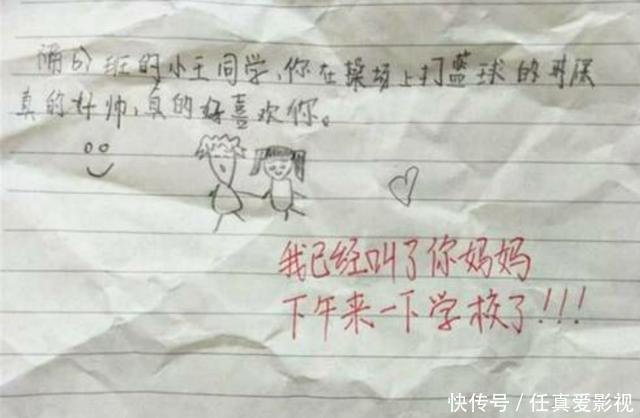 隔6)班的小王同学,你在操场上打蓝球的时候
真的好帅,真的好喜欢你。
我已经叫了你妈妈
下午来一下学校了!!!
快传号/任真爱影视